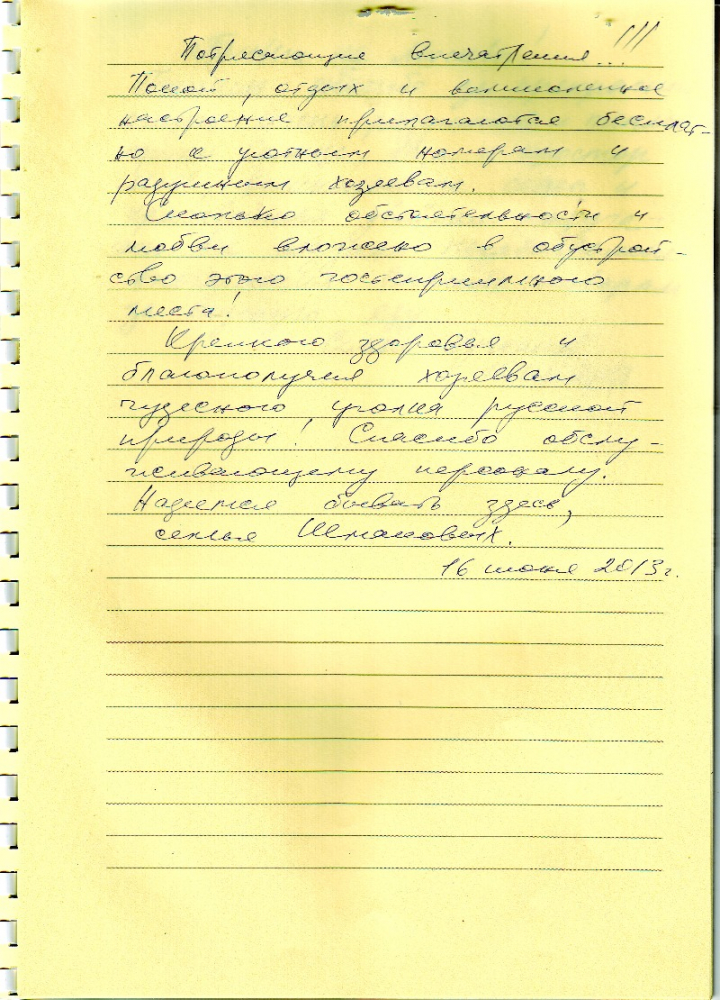 Потрясающие впечатления...!!!
Покой, отдых и великолепное
настроение прилагаются бесплат-
но к уютным номерам и
радушным хозяевам.
Сколько обстоятельности и
любви вложено в обустрой-
ство этого гостеприимного
места!
Крепкого здоровья и
благополучия хозяевам
чудесного уголка русской
природы! Спасибо обслу-
живающему персоналу.
Надеемся бывать здесь,
семья
16 июня 2013г.